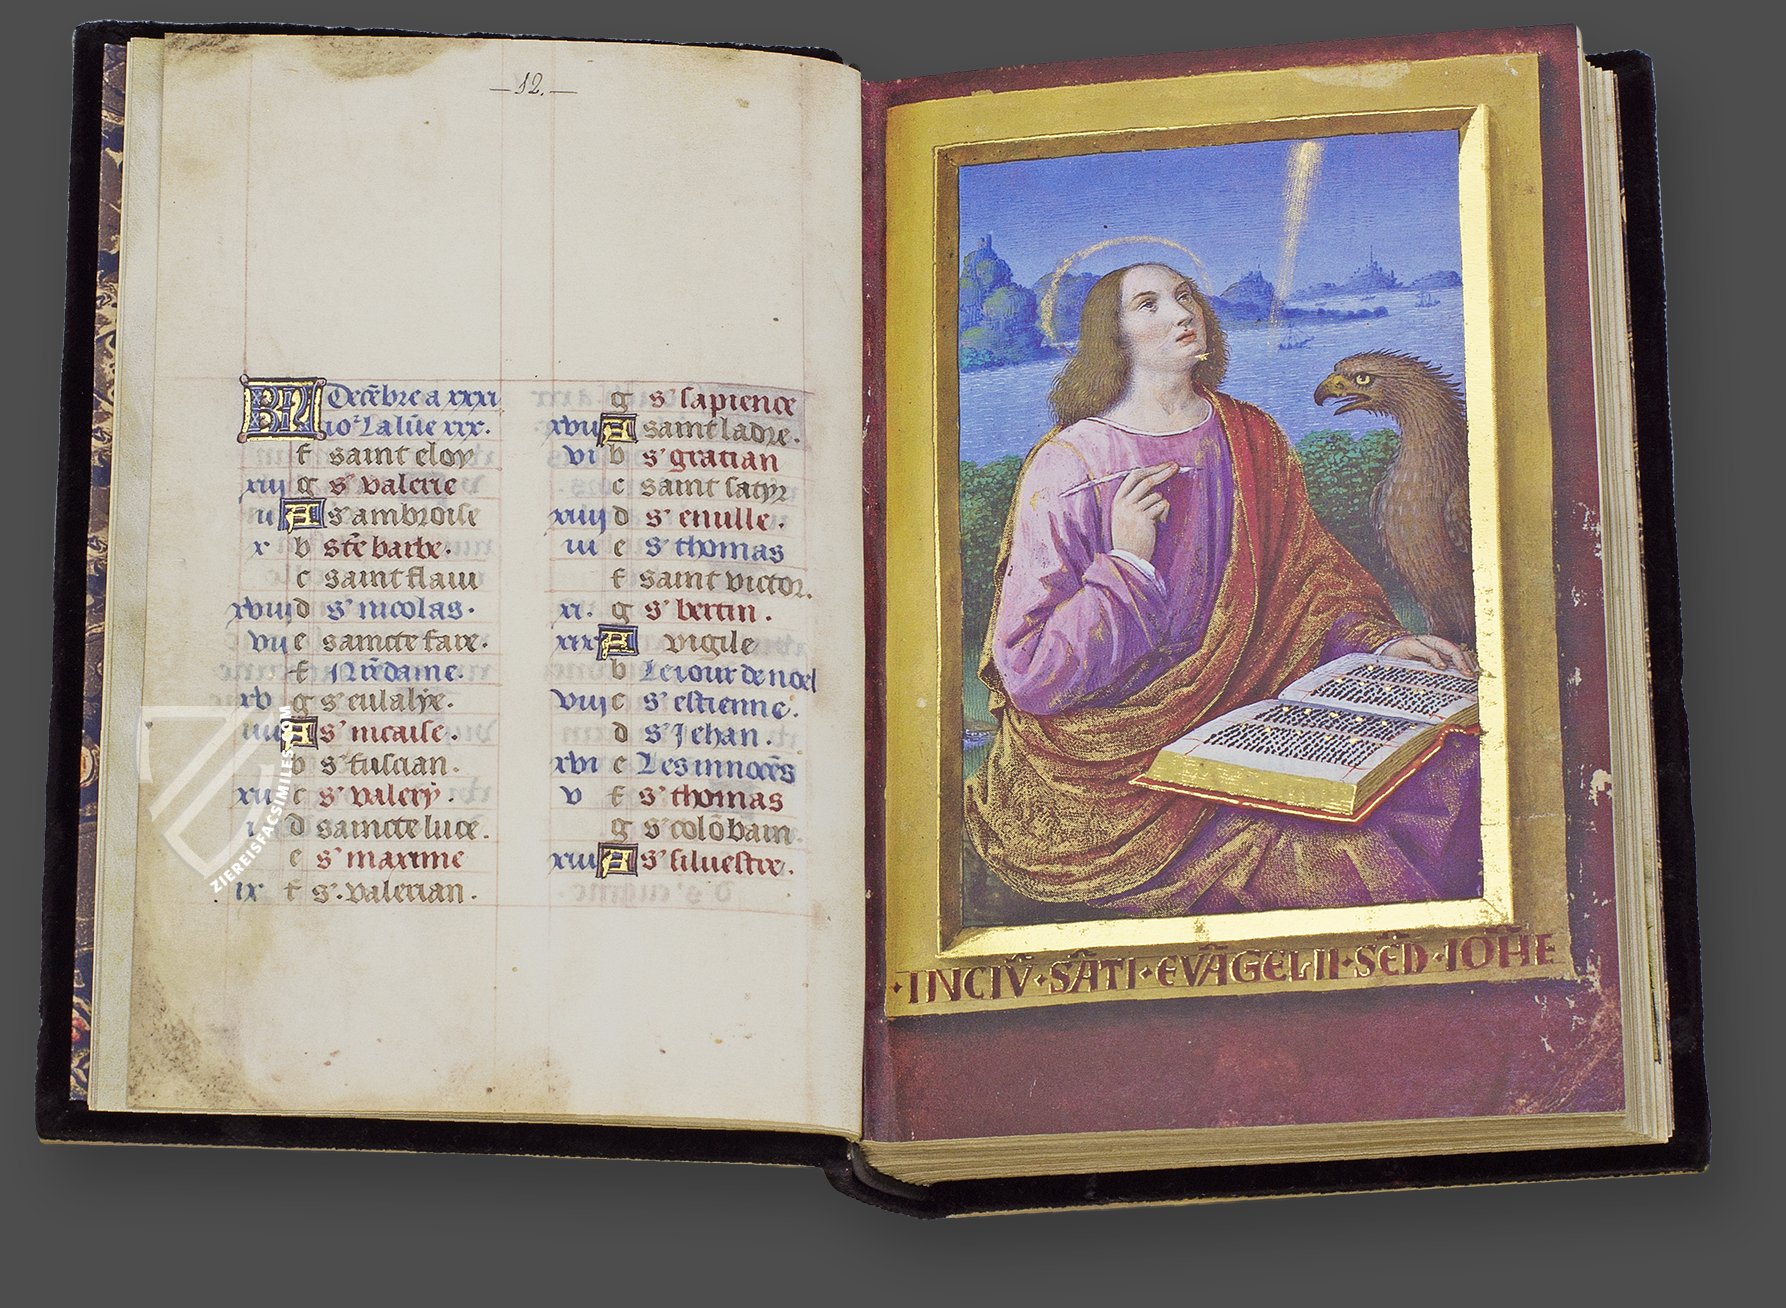 — 12. —
KL Decẽbre a xxxi
io² La lũe xxx.
f saint eloy
xiij g s' valerie
ij A s' ambroise
x b stẽ barbe.
c saint flaui
xviij d s' nicolas.
vij e saincte fare.
f Nr̃e dame.
xv g s' eulalye.
iiij A s' nicaise.
b s' fuscian.
xij c s' valery.
i d saincte luce.
e s' maxime
ix f s. valerian.
g s' sapience
xvij A saint ladre.
vi b s' gratian
c saint satyr
xiiij d s' enulle.
iij e s' thomas
f saint victor.
xi. g s' bertin.
xix A vigile
b Le iour de noel
viij c s' estienne.
d s' Jehan.
xvi e Les innocẽs
v f s' thomas
g s' colõbain.
xiij A s' siluestre.
·INCIṼ·SÃTI·EVÃGELII·SẼD·IOH̃E
ZIEREISFACSIMILES.COM